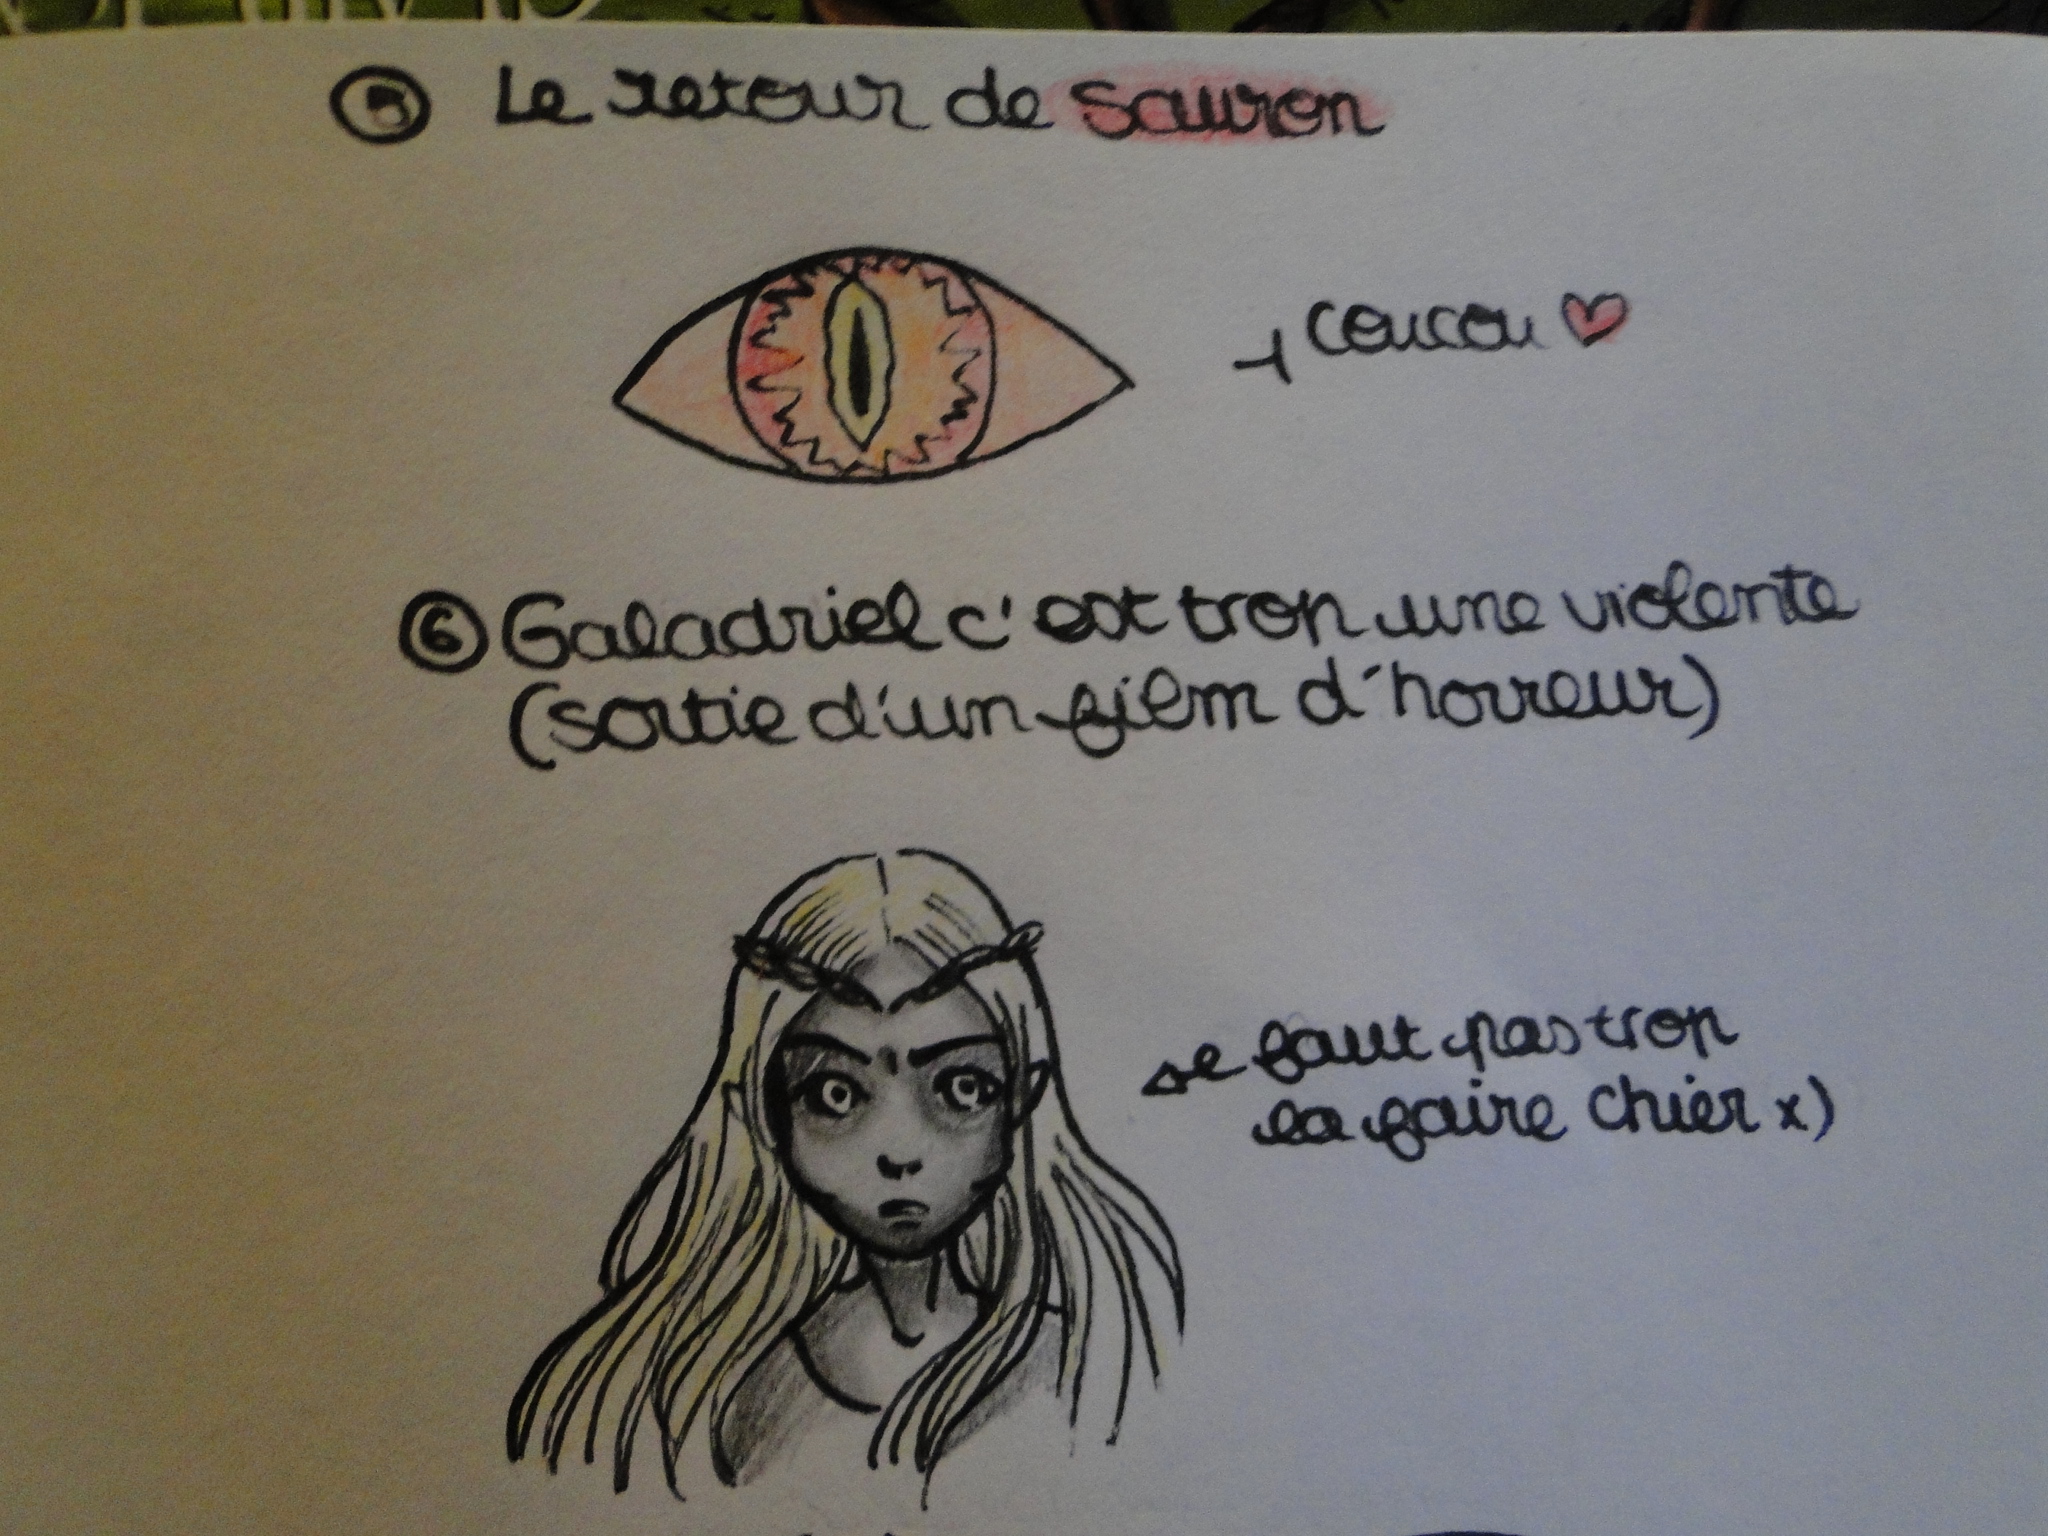 5 Le retour de Sauron
coucou ♡
6 Galadriel c'est trop une violente
(sortie d'un film d'horreur)
faut pas trop
la faire chier x)